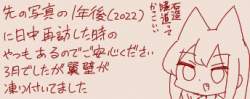 先の写真の1年後(2022)
に日中再訪した時の
やつもあるのでご安心ください
3月でしたが翼壁が
凍り付いてました
石造
隧道って
かっこいい